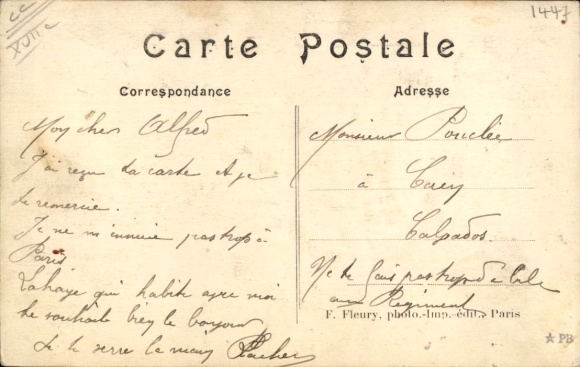 CC
XVIIe
1447
Carte Postale
Correspondance
Adresse
Mon cher Alfred
J'ai reçu ta carte et je
te remercie.
Je ne m'ennuie pas trop à
Paris
Lahaye qui habite avec moi
te souhaite bien le bonjour
Je te serre la main
Monsieur
à Caen
Calvados.
Ne te fais pas trop de bile
au Régiment
F. Fleury, photo.-Imp.-édit., Paris
PB